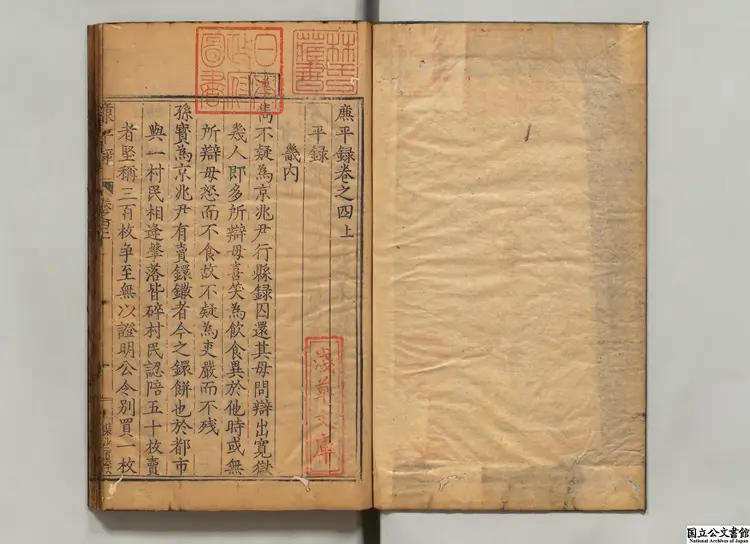 廉平録卷之四上
平録
畿内
漢
雋不疑為京兆尹行縣録囚還其母問辯出寃獄
幾人即多所辯母喜笑為飲食異於他時或無
所辯母怒而不食故不疑為吏嚴而不残
孫寳為京兆尹有賣鐶鏾者今之鐶餅也於都市
與一村民相逢擊落皆碎村民認陪五十枚賣
者堅稱三百枚争至無以證明公令别買一枚
林氏藏書
日本政府圖書
淺草文庫
国立公文書館
National Archives of Japan